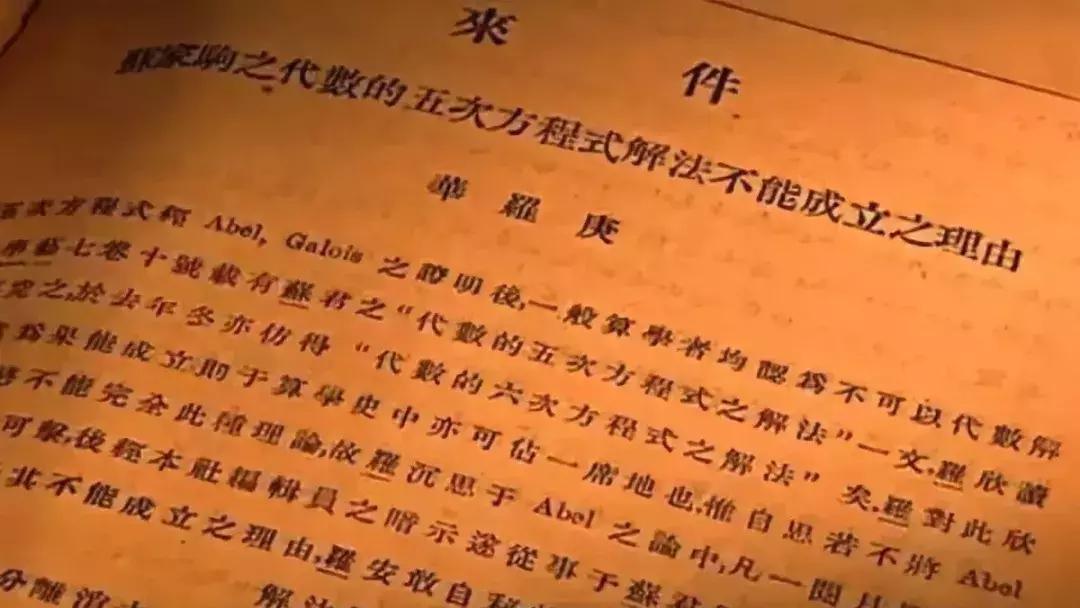 來件
蘇家駒之代數的五次方程式解法不能成立之理由
華羅庚
五次方程式經 Abel, Galois 之證明後,一般算學者均認爲不可以代數解
學藝七卷十號載有蘇君之“代數的五次方程式之解法”一文,羅欣讀
究之,於去年冬亦仿得“代數的六次方程式之解法”矣,羅對此欣
爲果能成立則于算學史中亦可佔一席地也,惟自思若不將 Abel
不能完全此種理論,故羅沉思于 Abel 之論中,凡一閱月
可擊,後經本社編輯員之暗示遂從事于蘇君
北不能成立之理由,羅安敢自秘
分離
解法